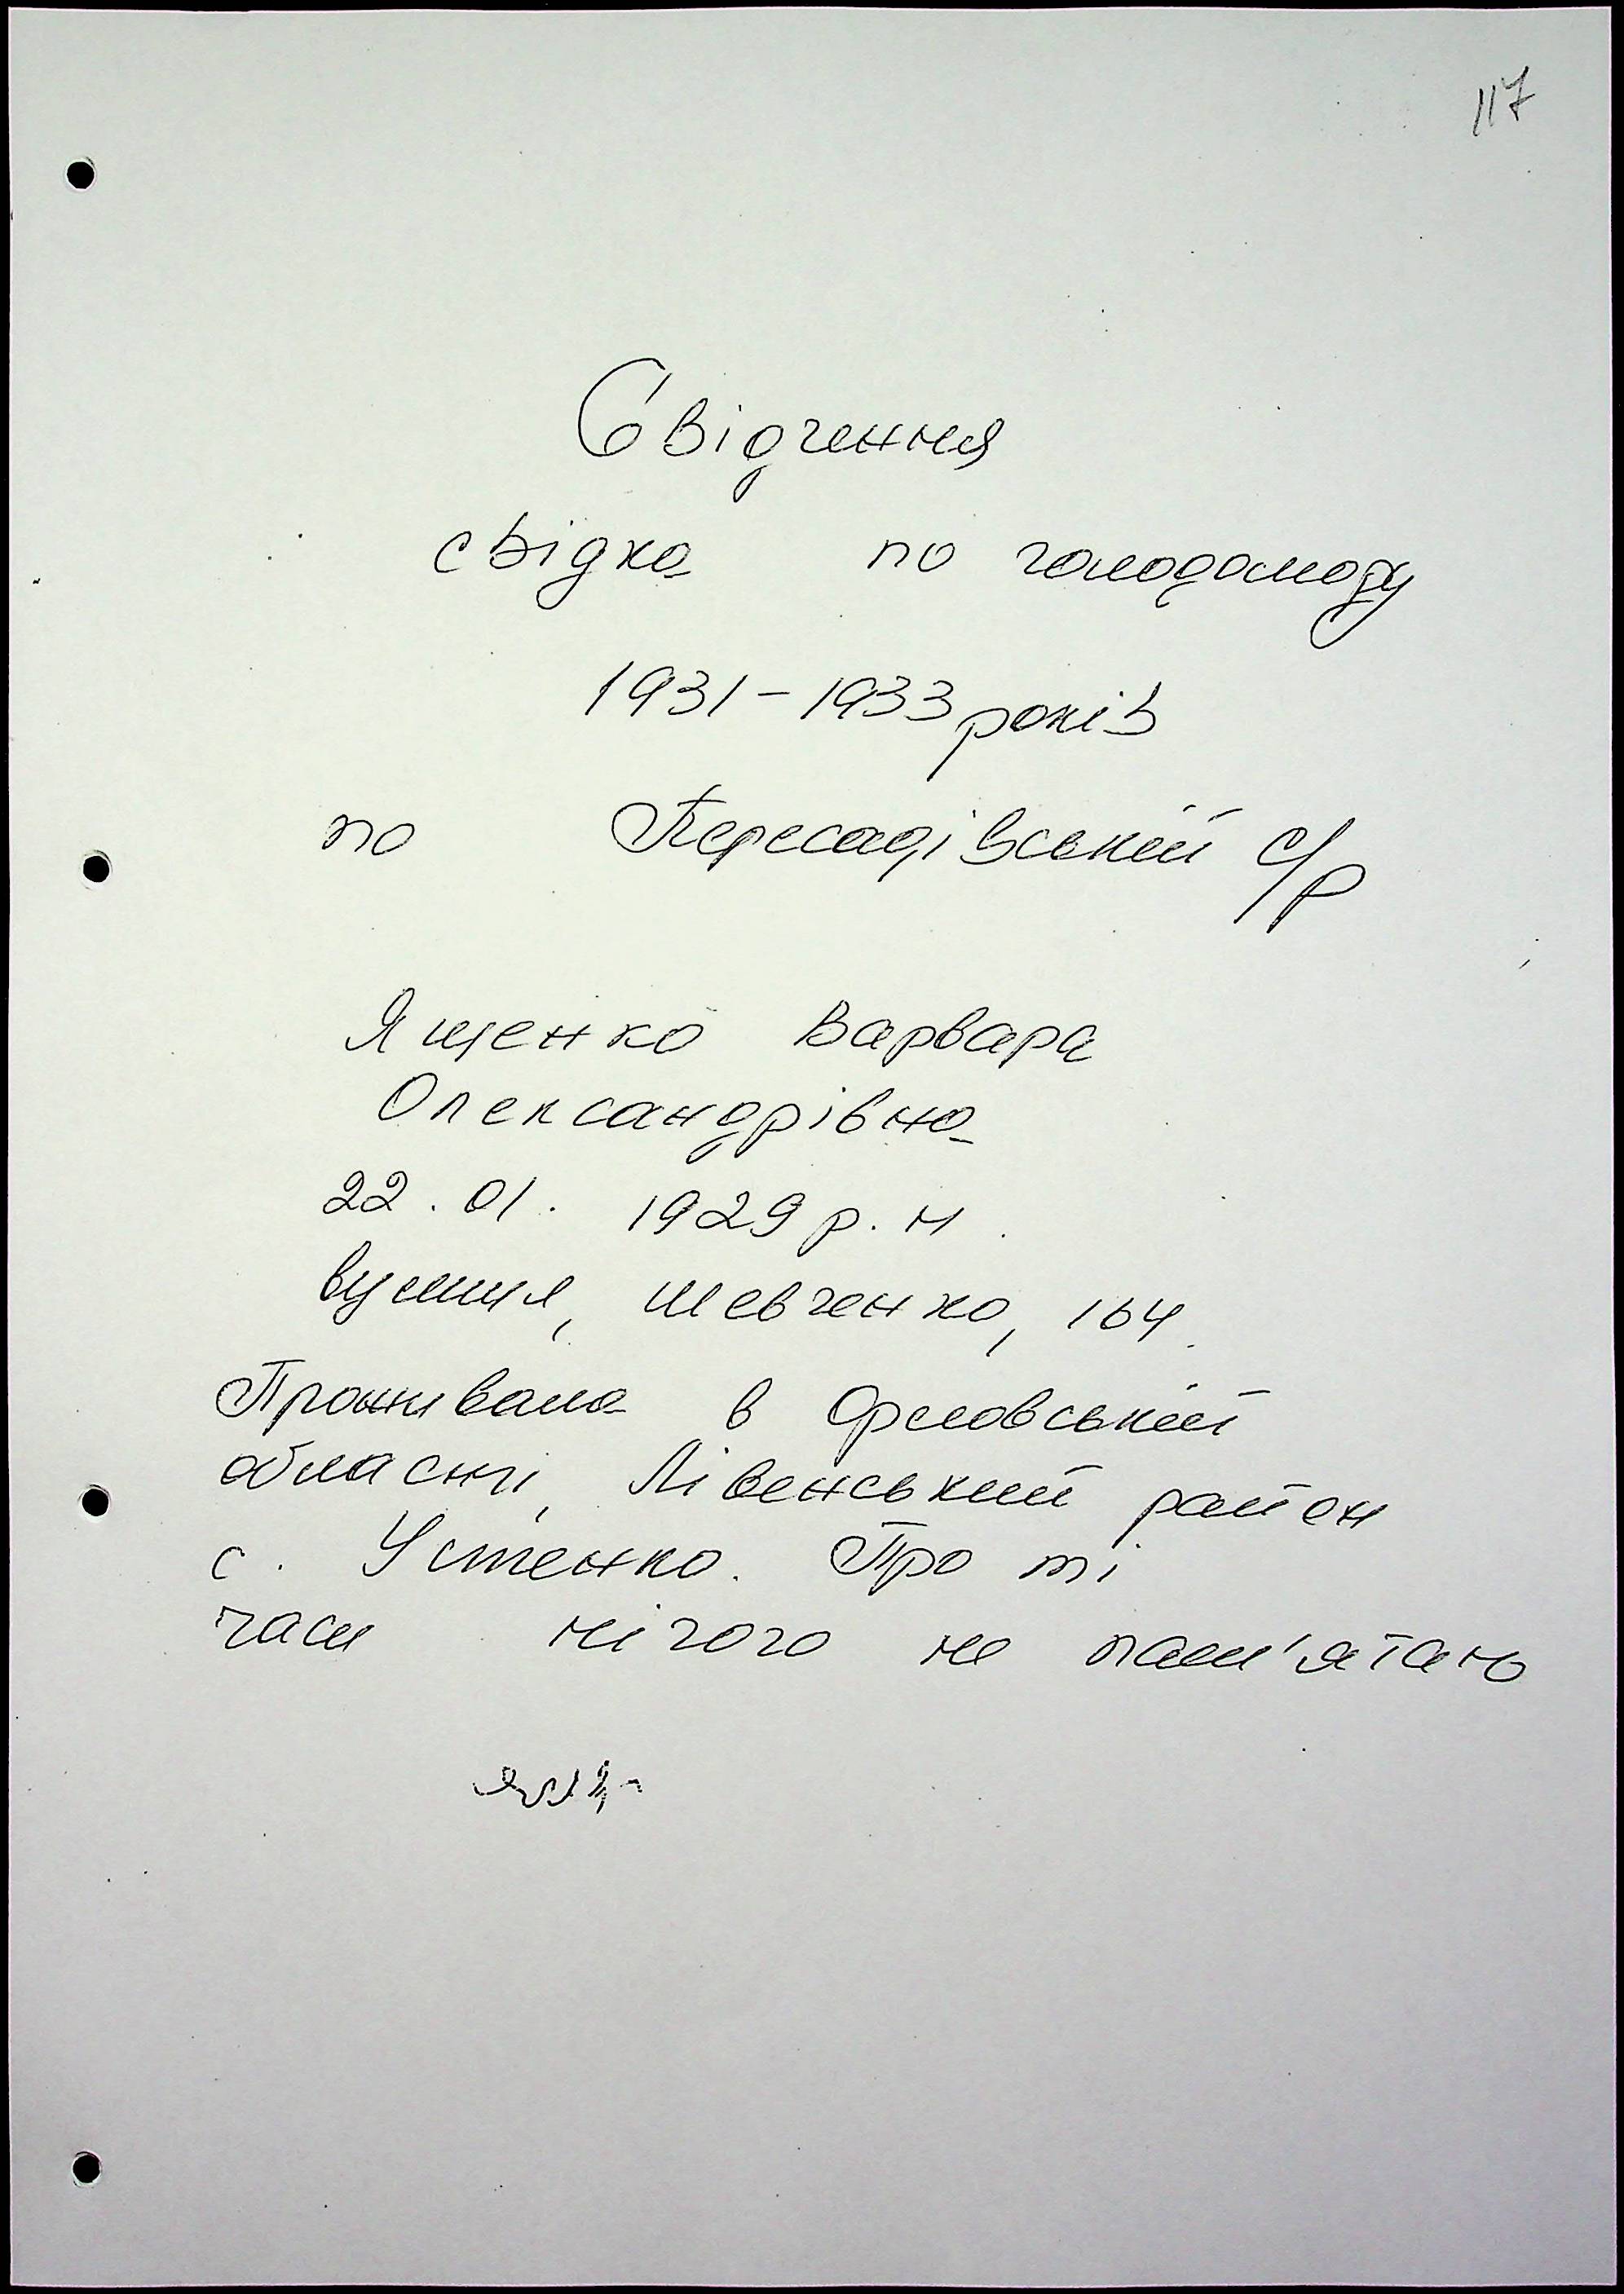 117
Свідчення
свідка по голодомору
1931-1933 років
по Пересадівській с/р
Ященко Варвара
Олександрівна
22.01. 1929 р.н.
вулиця, Шевченко, 164.
Проживала в Орловській
області, Лівенський район
с. Устенко. Про ті
часи нічого не пам'ятаю